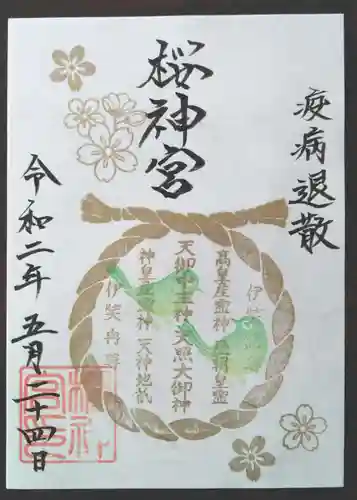 疫病退散
桜神宮
令和二年 五月二十四日
伊弉
高皇産霊神
天御中主神 天照大御神
神皇産霊神 天神地祇
伊弉冉尊